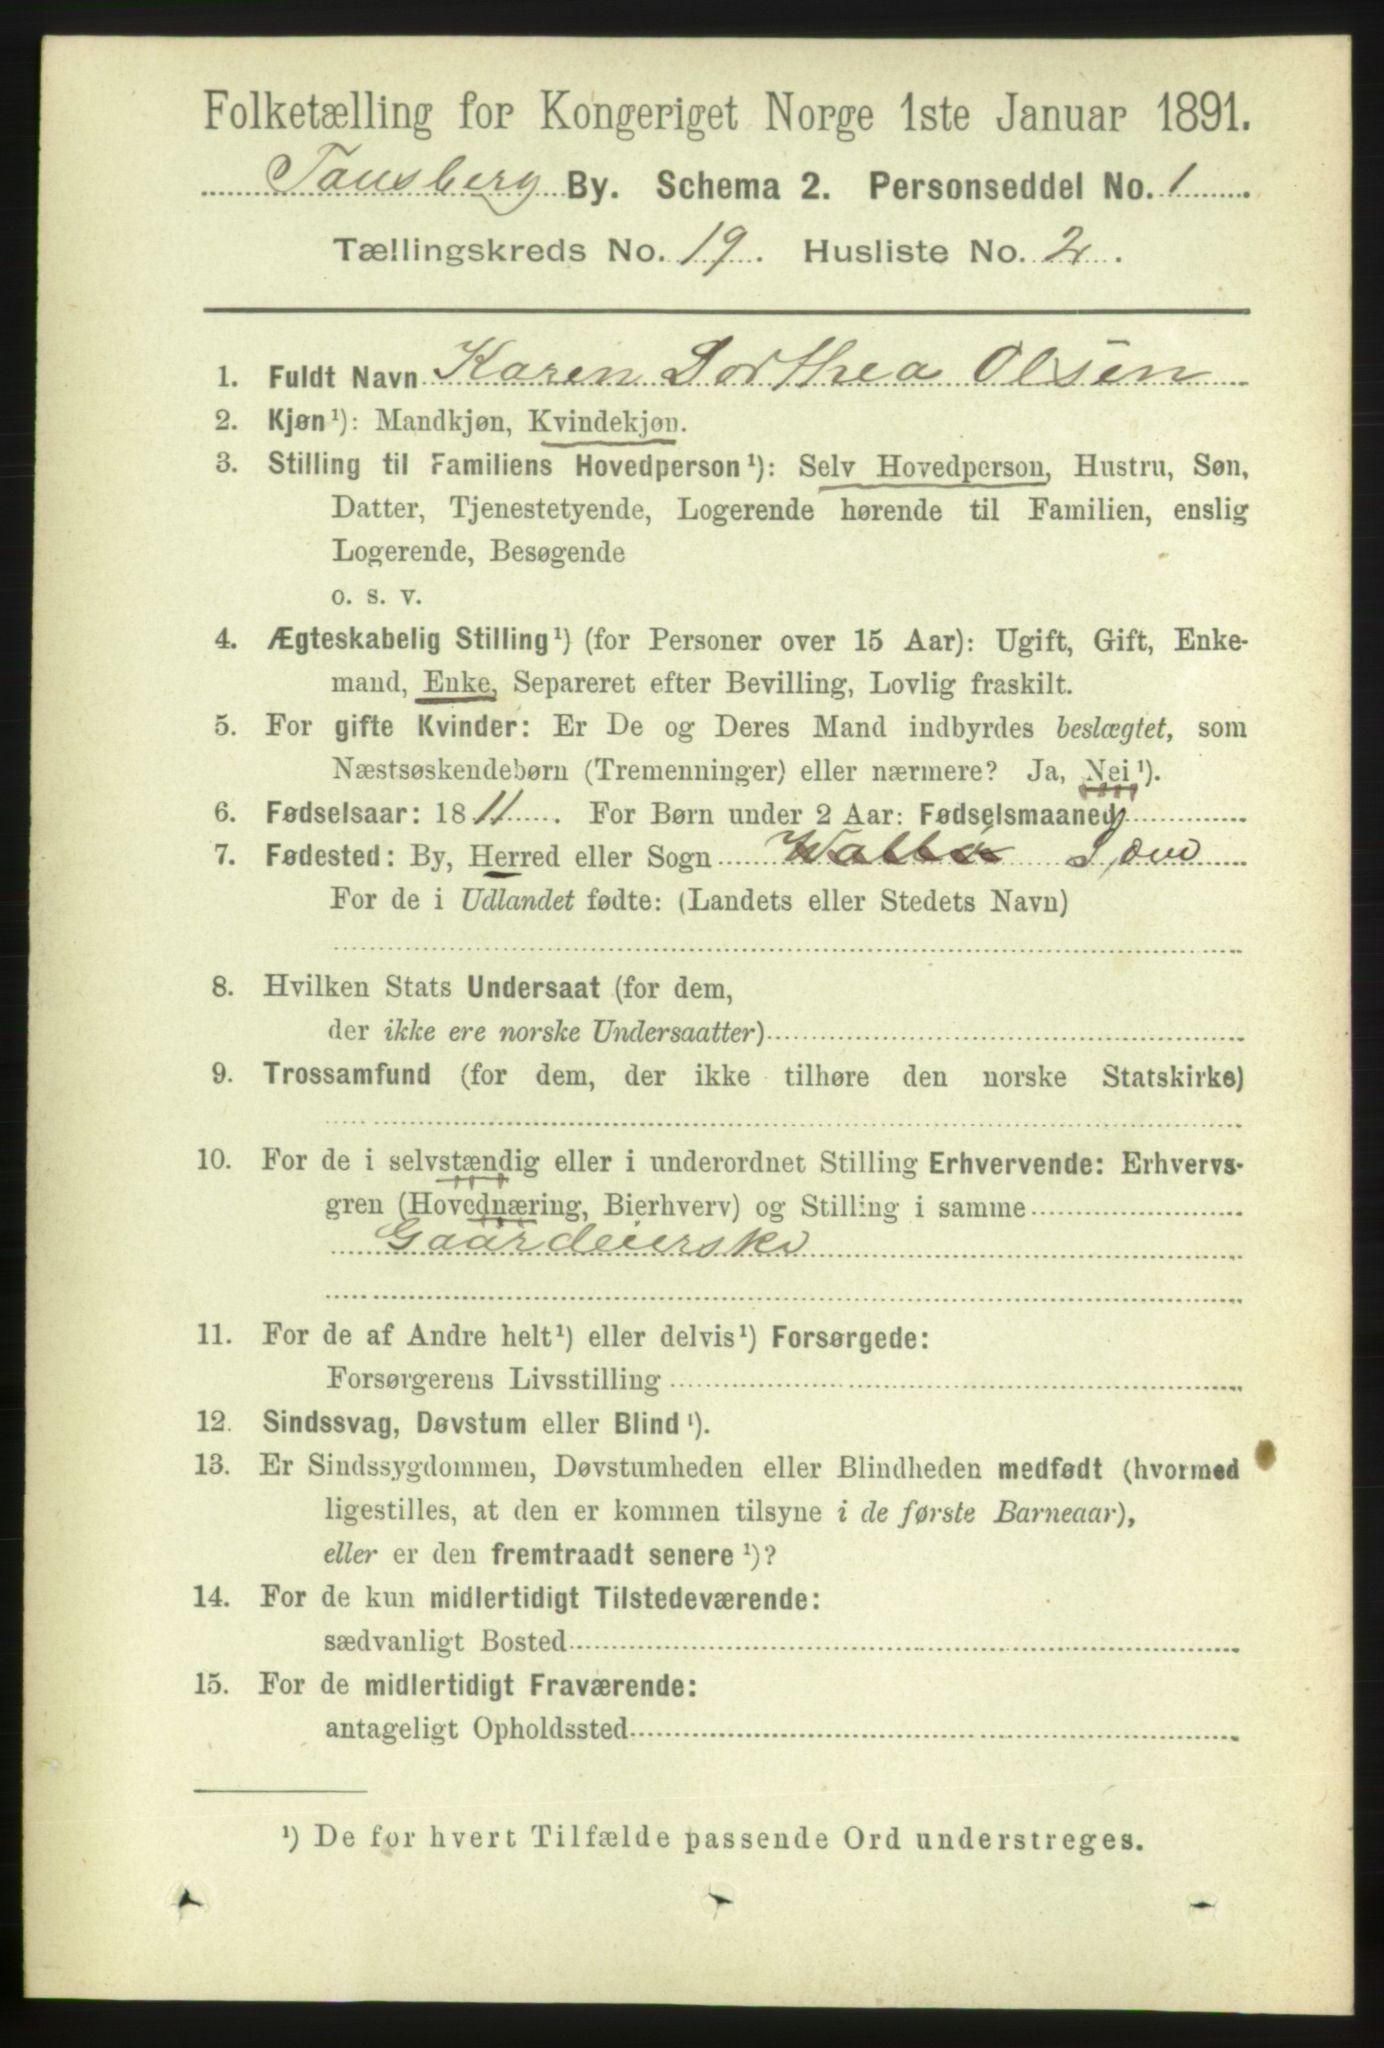 Folketælling for Kongeriget Norge 1ste Januar 1891.
Tønsberg By. Schema 2. Personseddel No. 1
Tællingskreds No. 19. Husliste No. 2.
1. Fuldt Navn Karen Dorthea Olsen
2. Kjøn¹): Mandkjøn, Kvindekjøn.
3. Stilling til Familiens Hovedperson¹): Selv Hovedperson, Hustru, Søn,
Datter, Tjenestetyende, Logerende hørende til Familien, enslig
Logerende, Besøgende
o. s. v.
4. Ægteskabelig Stilling¹) (for Personer over 15 Aar): Ugift, Gift, Enke-
mand, Enke, Separeret efter Bevilling, Lovlig fraskilt.
5. For gifte Kvinder: Er De og Deres Mand indbyrdes beslægtet, som
Næstsøskendebørn (Tremenninger) eller nærmere? Ja, Nei¹).
6. Fødselsaar: 1811. For Børn under 2 Aar: Fødselsmaaned
7. Fødested: By, Herred eller Sogn Sæm
For de i Udlandet fødte: (Landets eller Stedets Navn)
8. Hvilken Stats Undersaat (for dem,
der ikke ere norske Undersaatter)
9. Trossamfund (for dem, der ikke tilhøre den norske Statskirke)
10. For de i selvstændig eller i underordnet Stilling Erhvervende: Erhvervs-
gren (Hovednæring, Bierhverv) og Stilling i samme
Gaardeierske
11. For de af Andre helt¹) eller delvis¹) Forsørgede:
Forsørgerens Livsstilling
12. Sindssvag, Døvstum eller Blind¹).
13. Er Sindssygdommen, Døvstumheden eller Blindheden medfødt (hvormed
ligestilles, at den er kommen tilsyne i de første Barneaar),
eller er den fremtraadt senere¹)?
14. For de kun midlertidigt Tilstedeværende:
sædvanligt Bosted
15. For de midlertidigt Fraværende:
antageligt Opholdssted
¹) De for hvert Tilfælde passende Ord understreges.